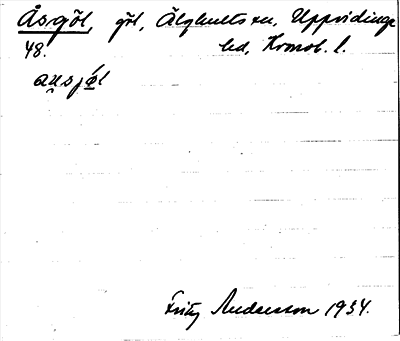 Åsgöl, göl, Älghults sn, Uppvidinge
48. hd, Kronob. l.
Fritz Andersson 1934.